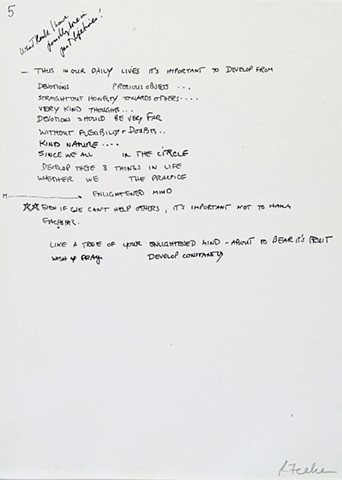 5
What Roads I have
possibly been in
past lifetimes!
– THUS IN OUR DAILY LIVES IT'S IMPORTANT TO DEVELOP FROM
DEVOTIONS PRECIOUS OBJECTS ...
STRAIGHTOUT HONESTY TOWARDS OTHERS....
VERY KIND THOUGHTS...
DEVOTIONS SHOULD BE VERY FAR
WITHOUT FLEXIBILITY + DOUBTS..
KIND NATURE ....
SINCE WE ALL IN THE CIRCLE
DEVELOP THESE 3 THINGS IN LIFE
WHETHER WE THE PRACTICE
M ENLIGHTENED MIND
☆☆ EVEN IF WE CAN'T HELP OTHERS, IT'S IMPORTANT NOT TO HARM
LIKE A TREE OF YOUR ENLIGHTENED MIND – ABOUT TO BEAR IT'S FRUIT
WISH & PRAY DEVELOP CONSTANTLY